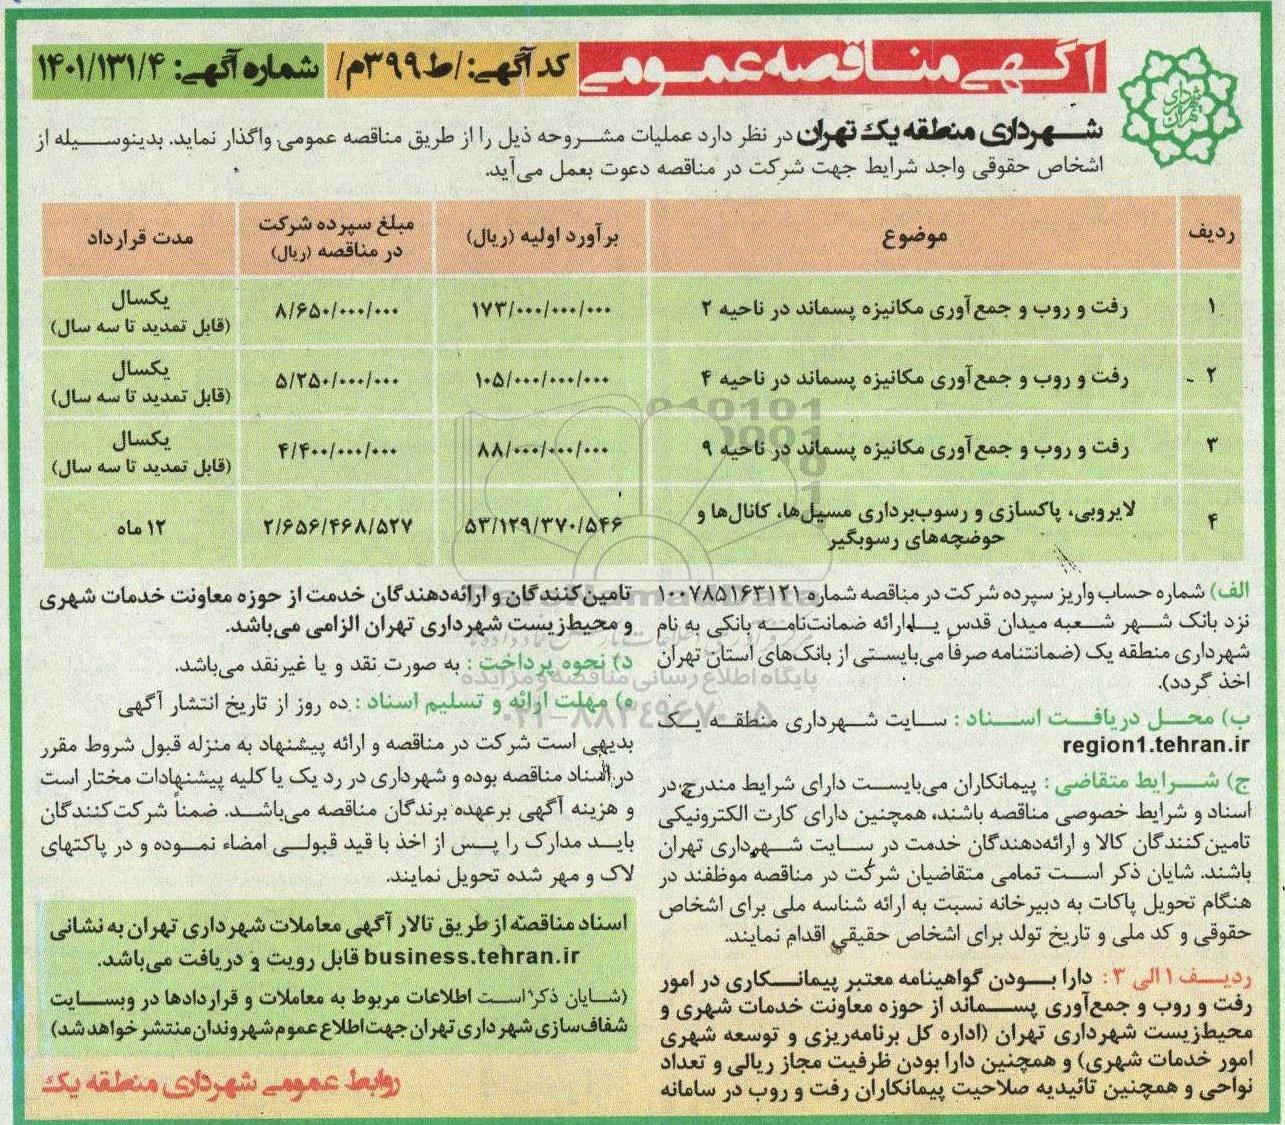 آگهی مناقصه عمومی
کد آگهی: /ط۳۹۹م/
شماره آگهی: ۱۴۰۱/۱۳۱/۴
شهرداری تهران
شهرداری منطقه یک تهران در نظر دارد عملیات مشروحه ذیل را از طریق مناقصه عمومی واگذار نماید. بدینوسیله از
اشخاص حقوقی واجد شرایط جهت شرکت در مناقصه دعوت بعمل می‌آید.
ردیف موضوع برآورد اولیه (ریال) مبلغ سپرده شرکت در مناقصه (ریال) مدت قرارداد
۱ رفت و روب و جمع‌آوری مکانیزه پسماند در ناحیه ۲ ۱۷۳/۰۰۰/۰۰۰/۰۰۰ ۸/۶۵۰/۰۰۰/۰۰۰ یکسال (قابل تمدید تا سه سال)
۲ رفت و روب و جمع‌آوری مکانیزه پسماند در ناحیه ۴ ۱۰۵/۰۰۰/۰۰۰/۰۰۰ ۵/۲۵۰/۰۰۰/۰۰۰ یکسال (قابل تمدید تا سه سال)
۳ رفت و روب و جمع‌آوری مکانیزه پسماند در ناحیه ۹ ۸۸/۰۰۰/۰۰۰/۰۰۰ ۴/۴۰۰/۰۰۰/۰۰۰ یکسال (قابل تمدید تا سه سال)
۴ لایروبی، پاکسازی و رسوب‌برداری مسیل‌ها، کانال‌ها و حوضچه‌های رسوبگیر ۵۳/۱۲۹/۳۷۰/۵۴۶ ۲/۶۵۶/۴۶۸/۵۲۷ ۱۲ ماه
الف) شماره حساب واریز سپرده شرکت در مناقصه شماره ۱۰۰۷۸۵۱۶۳۱۲۱
نزد بانک شهر شعبه میدان قدس یا ارائه ضمانت‌نامه بانکی به نام
شهرداری منطقه یک (ضمانتنامه صرفاً می‌بایستی از بانک‌های استان تهران
اخذ گردد).
ب) محل دریافت اسناد : سایت شهرداری منطقه یک
region1.tehran.ir
ج) شرایط متقاضی : پیمانکاران می‌بایست دارای شرایط مندرج در
اسناد و شرایط خصوصی مناقصه باشند، همچنین دارای کارت الکترونیکی
تامین‌کنندگان کالا و ارائه‌دهندگان خدمت در سایت شهرداری تهران
باشند. شایان ذکر است تمامی متقاضیان شرکت در مناقصه موظفند در
هنگام تحویل پاکات به دبیرخانه نسبت به ارائه شناسه ملی برای اشخاص
حقوقی و کد ملی و تاریخ تولد برای اشخاص حقیقی اقدام نمایند.
ردیف ۱ الی ۳ : دارا بودن گواهینامه معتبر پیمانکاری در امور
رفت و روب و جمع‌آوری پسماند از حوزه معاونت خدمات شهری و
محیط‌زیست شهرداری تهران (اداره کل برنامه‌ریزی و توسعه شهری
امور خدمات شهری) و همچنین دارا بودن ظرفیت مجاز ریالی و تعداد
نواحی و همچنین تائیدیه صلاحیت پیمانکاران رفت و روب در سامانه
تامین‌کنندگان و ارائه‌دهندگان خدمت از حوزه معاونت خدمات شهری
و محیط‌زیست شهرداری تهران الزامی می‌باشد.
د) نحوه پرداخت : به صورت نقد و یا غیرنقد می‌باشد.
ه) مهلت ارائه و تسلیم اسناد : ده روز از تاریخ انتشار آگهی
بدیهی است شرکت در مناقصه و ارائه پیشنهاد به منزله قبول شروط مقرر
در اسناد مناقصه بوده و شهرداری در رد یک یا کلیه پیشنهادات مختار است
و هزینه آگهی برعهده برندگان مناقصه می‌باشد. ضمناً شرکت‌کنندگان
باید مدارک را پس از اخذ با قید قبولی امضاء نموده و در پاکتهای
لاک و مهر شده تحویل نمایند.
اسناد مناقصه از طریق تالار آگهی معاملات شهرداری تهران به نشانی
business.tehran.ir قابل رویت و دریافت می‌باشد.
(شایان ذکر است اطلاعات مربوط به معاملات و قراردادها در وبسایت
شفاف‌سازی شهرداری تهران جهت اطلاع عموم شهروندان منتشر خواهد شد)
روابط عمومی شهرداری منطقه یک
ParsNamadData
پایگاه اطلاع رسانی مناقصه و مزایده